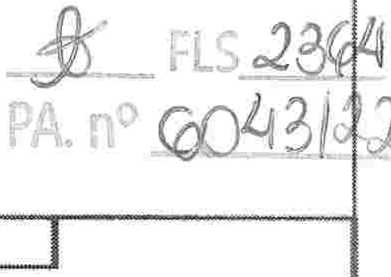 FLS 2364
PA. nº 6043/22